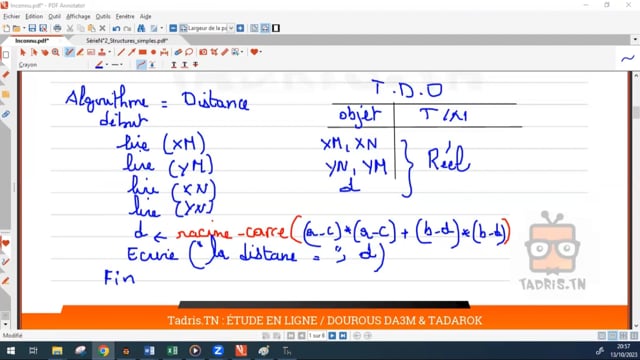 Inconnu.pdf* - PDF Annotator
Fichier Edition Outil Affichage Document Extras Fenêtre Aide
Largeur de la pag
Inconnu.pdf* SérieN°2_Structures_simples.pdf*
Crayon
T.D.O
Algorithme = Distance
objet
début
lire (XM)
XM, XN
lire (YM)
YN, YM
Réel
lire (XN)
d
lire (YN)
d ← racine-carre((a-c)*(a-c) + (b-d)*(b-d))
Ecrire ("la distane = ", d)
Fin
TADRIS.TN
Tadris.TN : ÉTUDE EN LIGNE / DOUROUS DA3M & TADAROK
Modifié
1 sur 8
20:57
13/10/2023